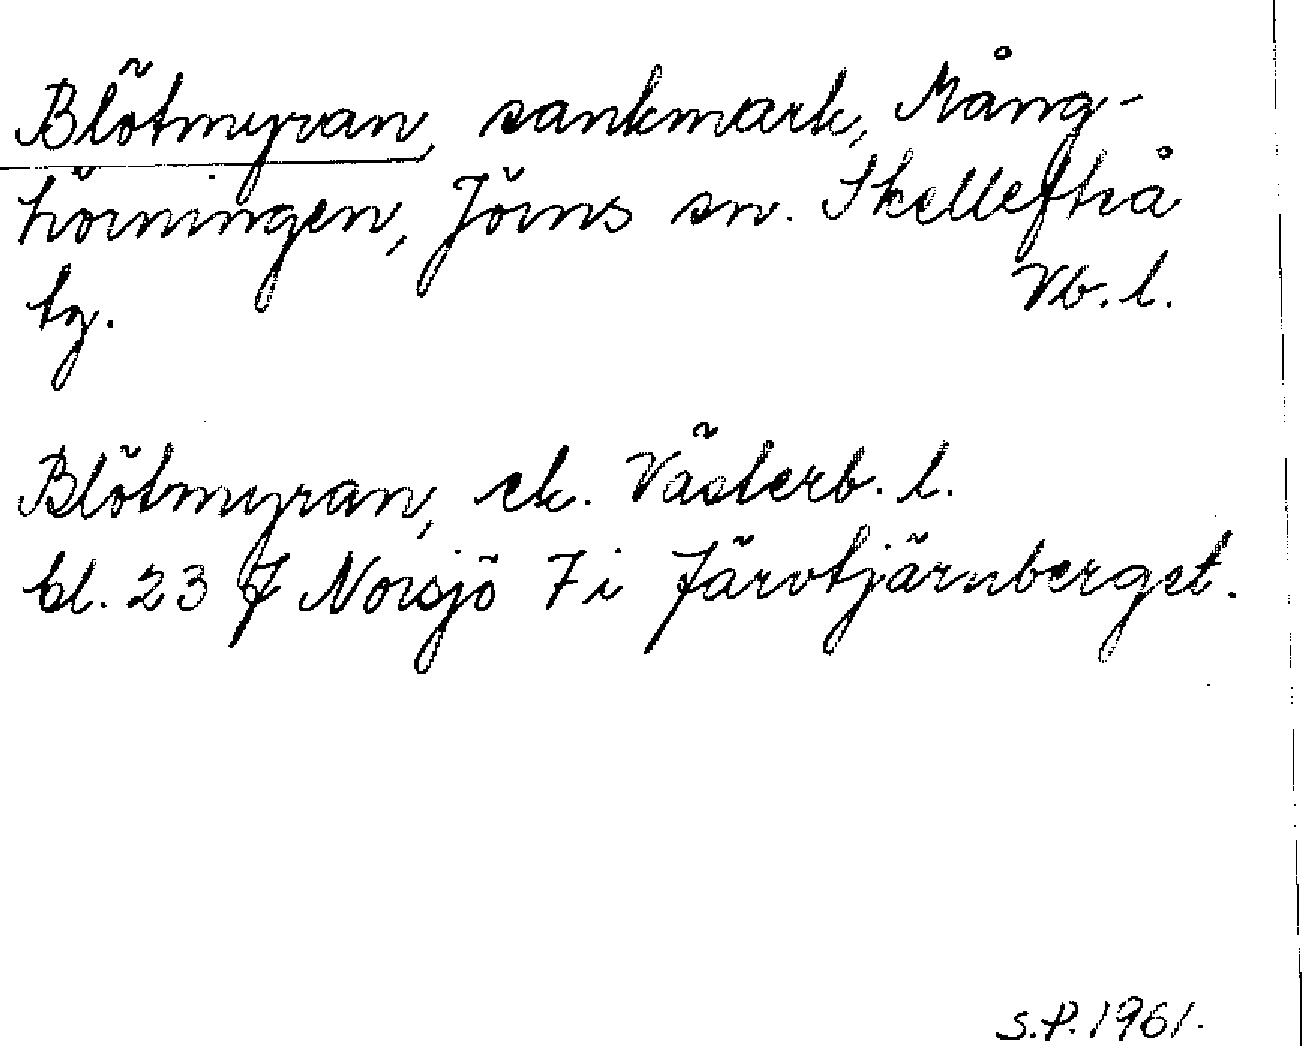 Blötmyran, sankmark, Mång-
hörningen, Jörns sn. Skellefteå
tg.
Vb. l.
Blötmyran, ek. Västerb. l.
bl. 23 J Norsjö 7 i Järvtjärnberget.
S.P. 1961.